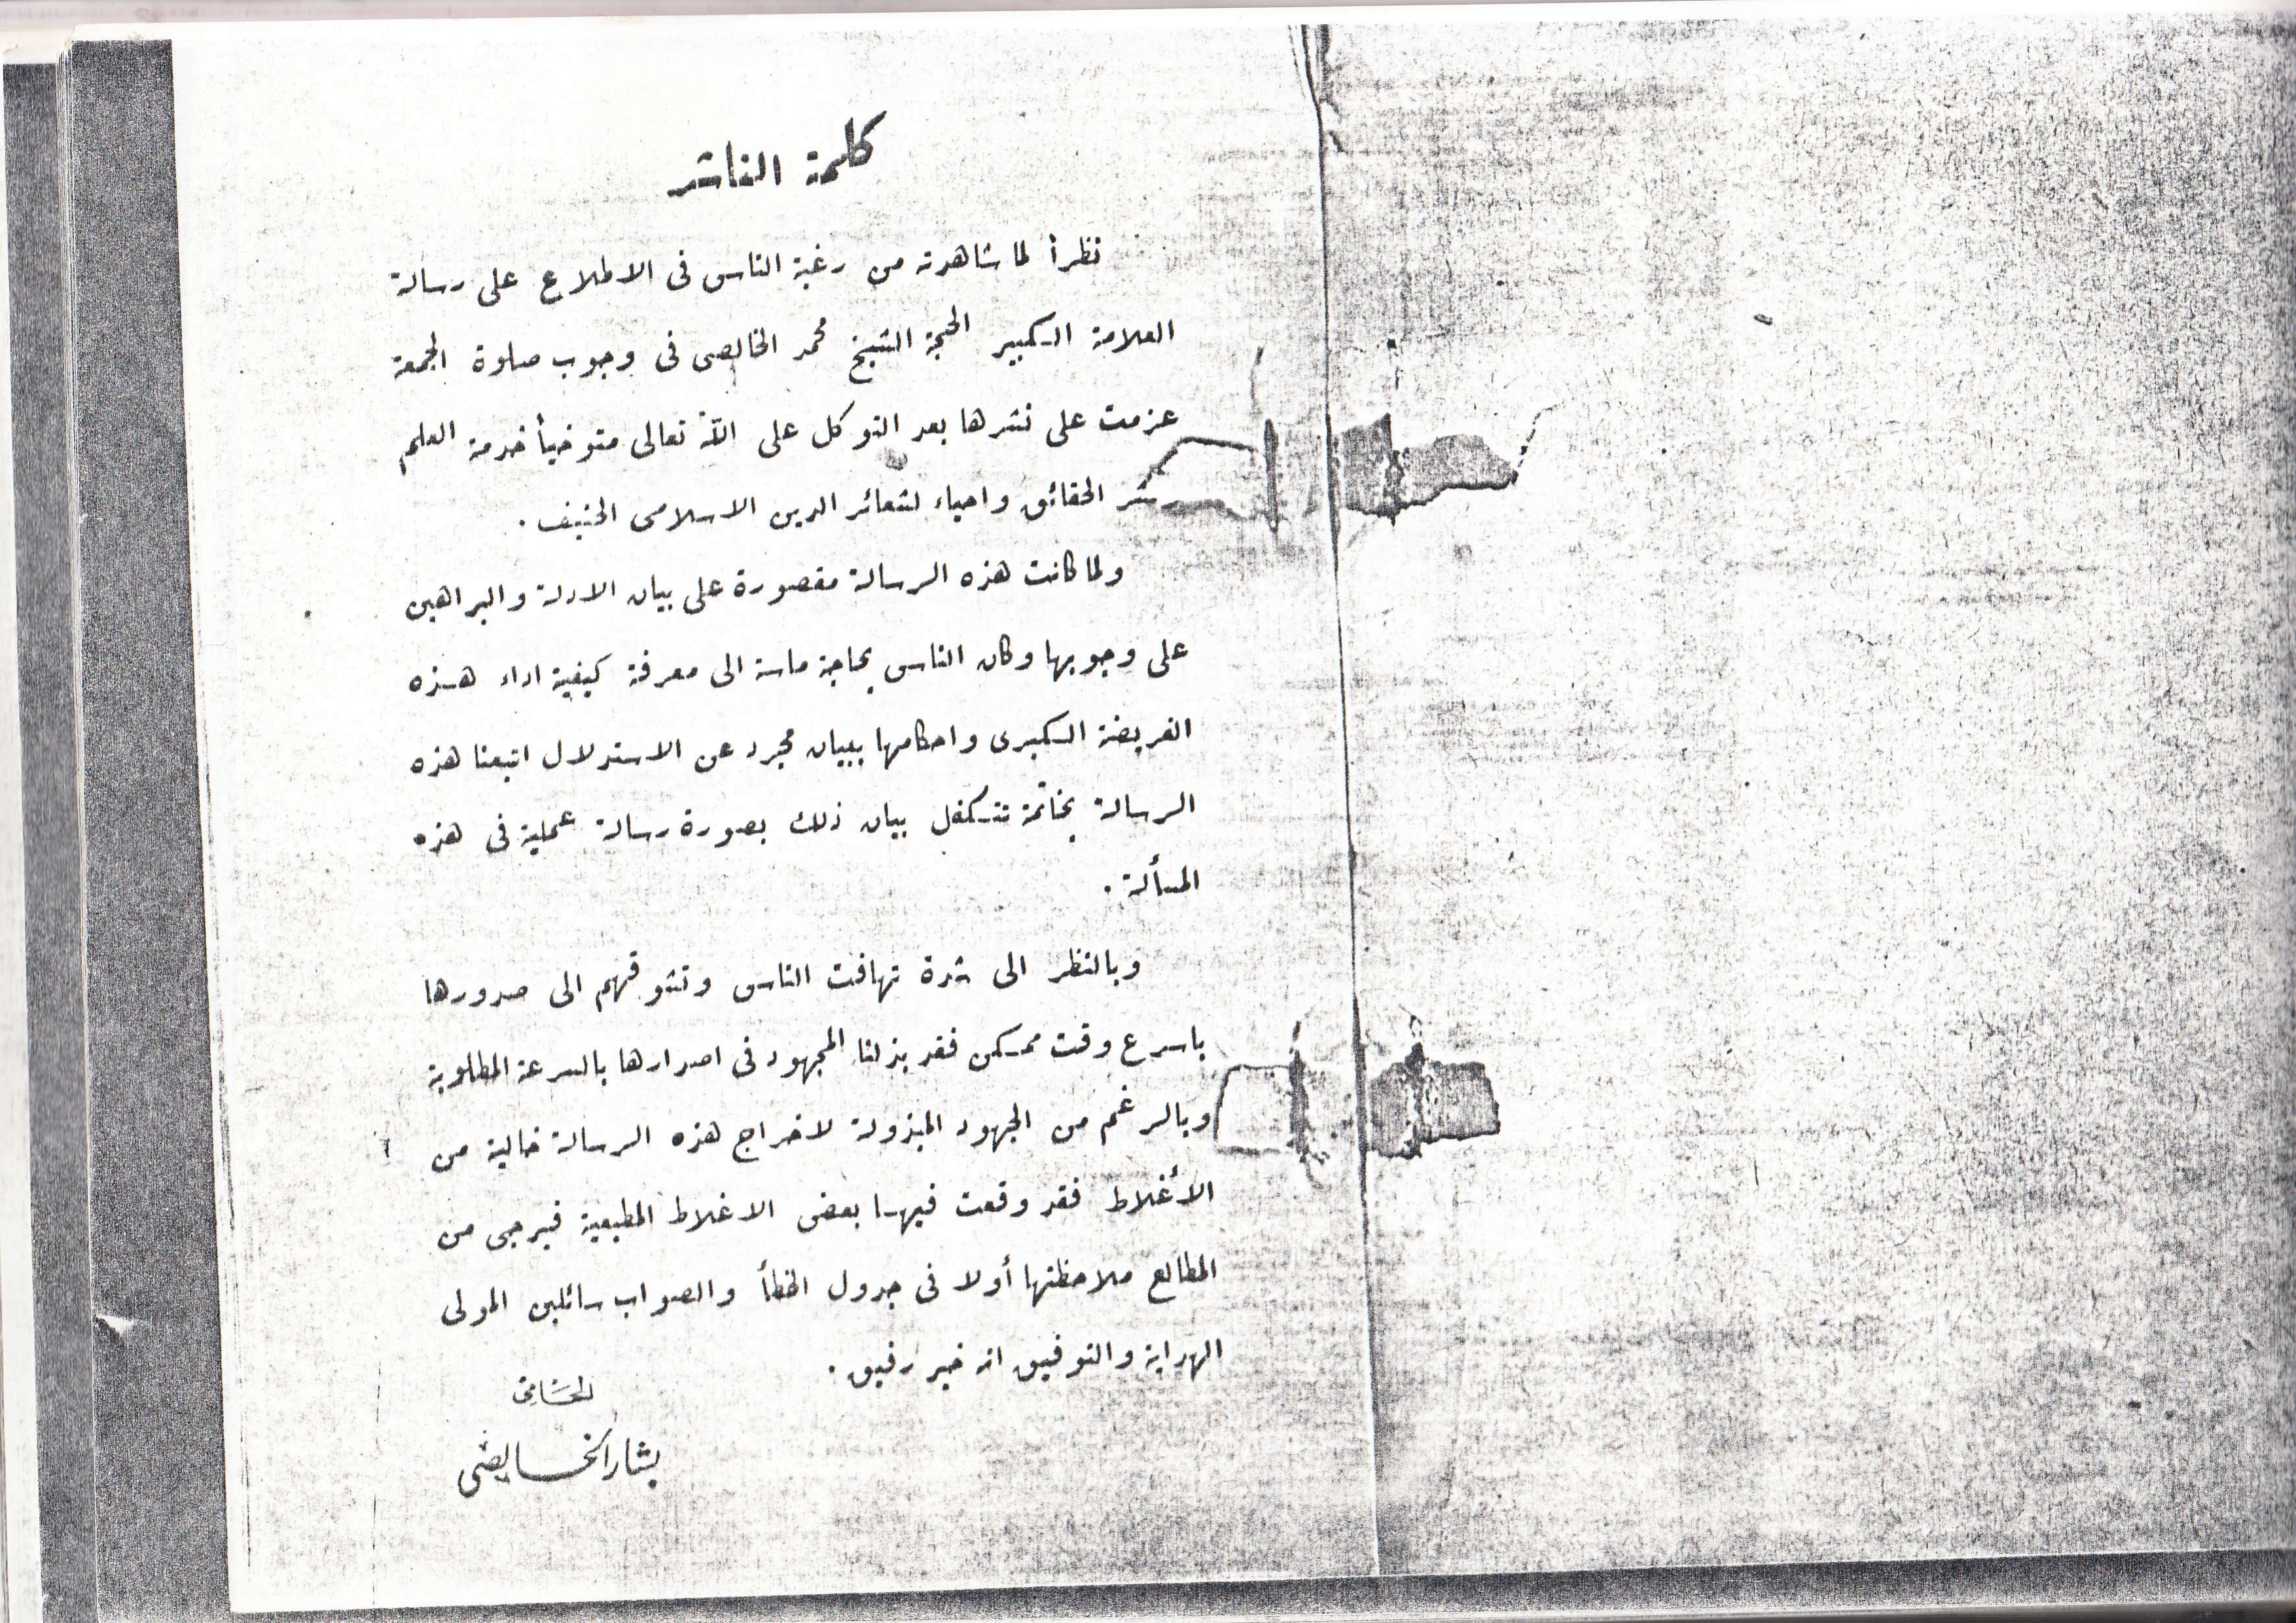 كلمة الناشر
نظراً لما شاهدته من رغبة الناس فى الاطلاع على رسالة
العلامة الكبير الحجة الشيخ محمد الخالصى فى وجوب صلوة الجمعة
عزمت على نشرها بعد التوكل على الله تعالى متوخياً خدمة العلم
الحقائق واحياء لشعائر الدين الاسلامى الحنيف .
ولما كانت هذه الرسالة مقصورة على بيان الادلة والبراهين
على وجوبها وكان الناس بحاجة ماسة الى معرفة كيفية اداء هذه
الفريضة الكبرى واحكامها ببيان مجرد عن الاستدلال اتبعنا هذه
الرسالة بخاتمة تتكفل بيان ذلك بصورة رسالة عملية فى هذه
المسألة .
وبالنظر الى شدة تهافت الناس وتشوقهم الى صدورها
باسرع وقت ممكن فقد بذلنا المجهود فى اصدارها بالسرعة المطلوبة
وبالرغم من الجهود المبذولة لاخراج هذه الرسالة خالية من
الأغلاط فقد وقعت فيها بعض الاغلاط المطبعية فيرجى من
المطالع ملاحظتها أولا فى جدول الخطأ والصواب سائلين المولى
الهداية والتوفيق انه خير رفيق .
بشار الخالصى